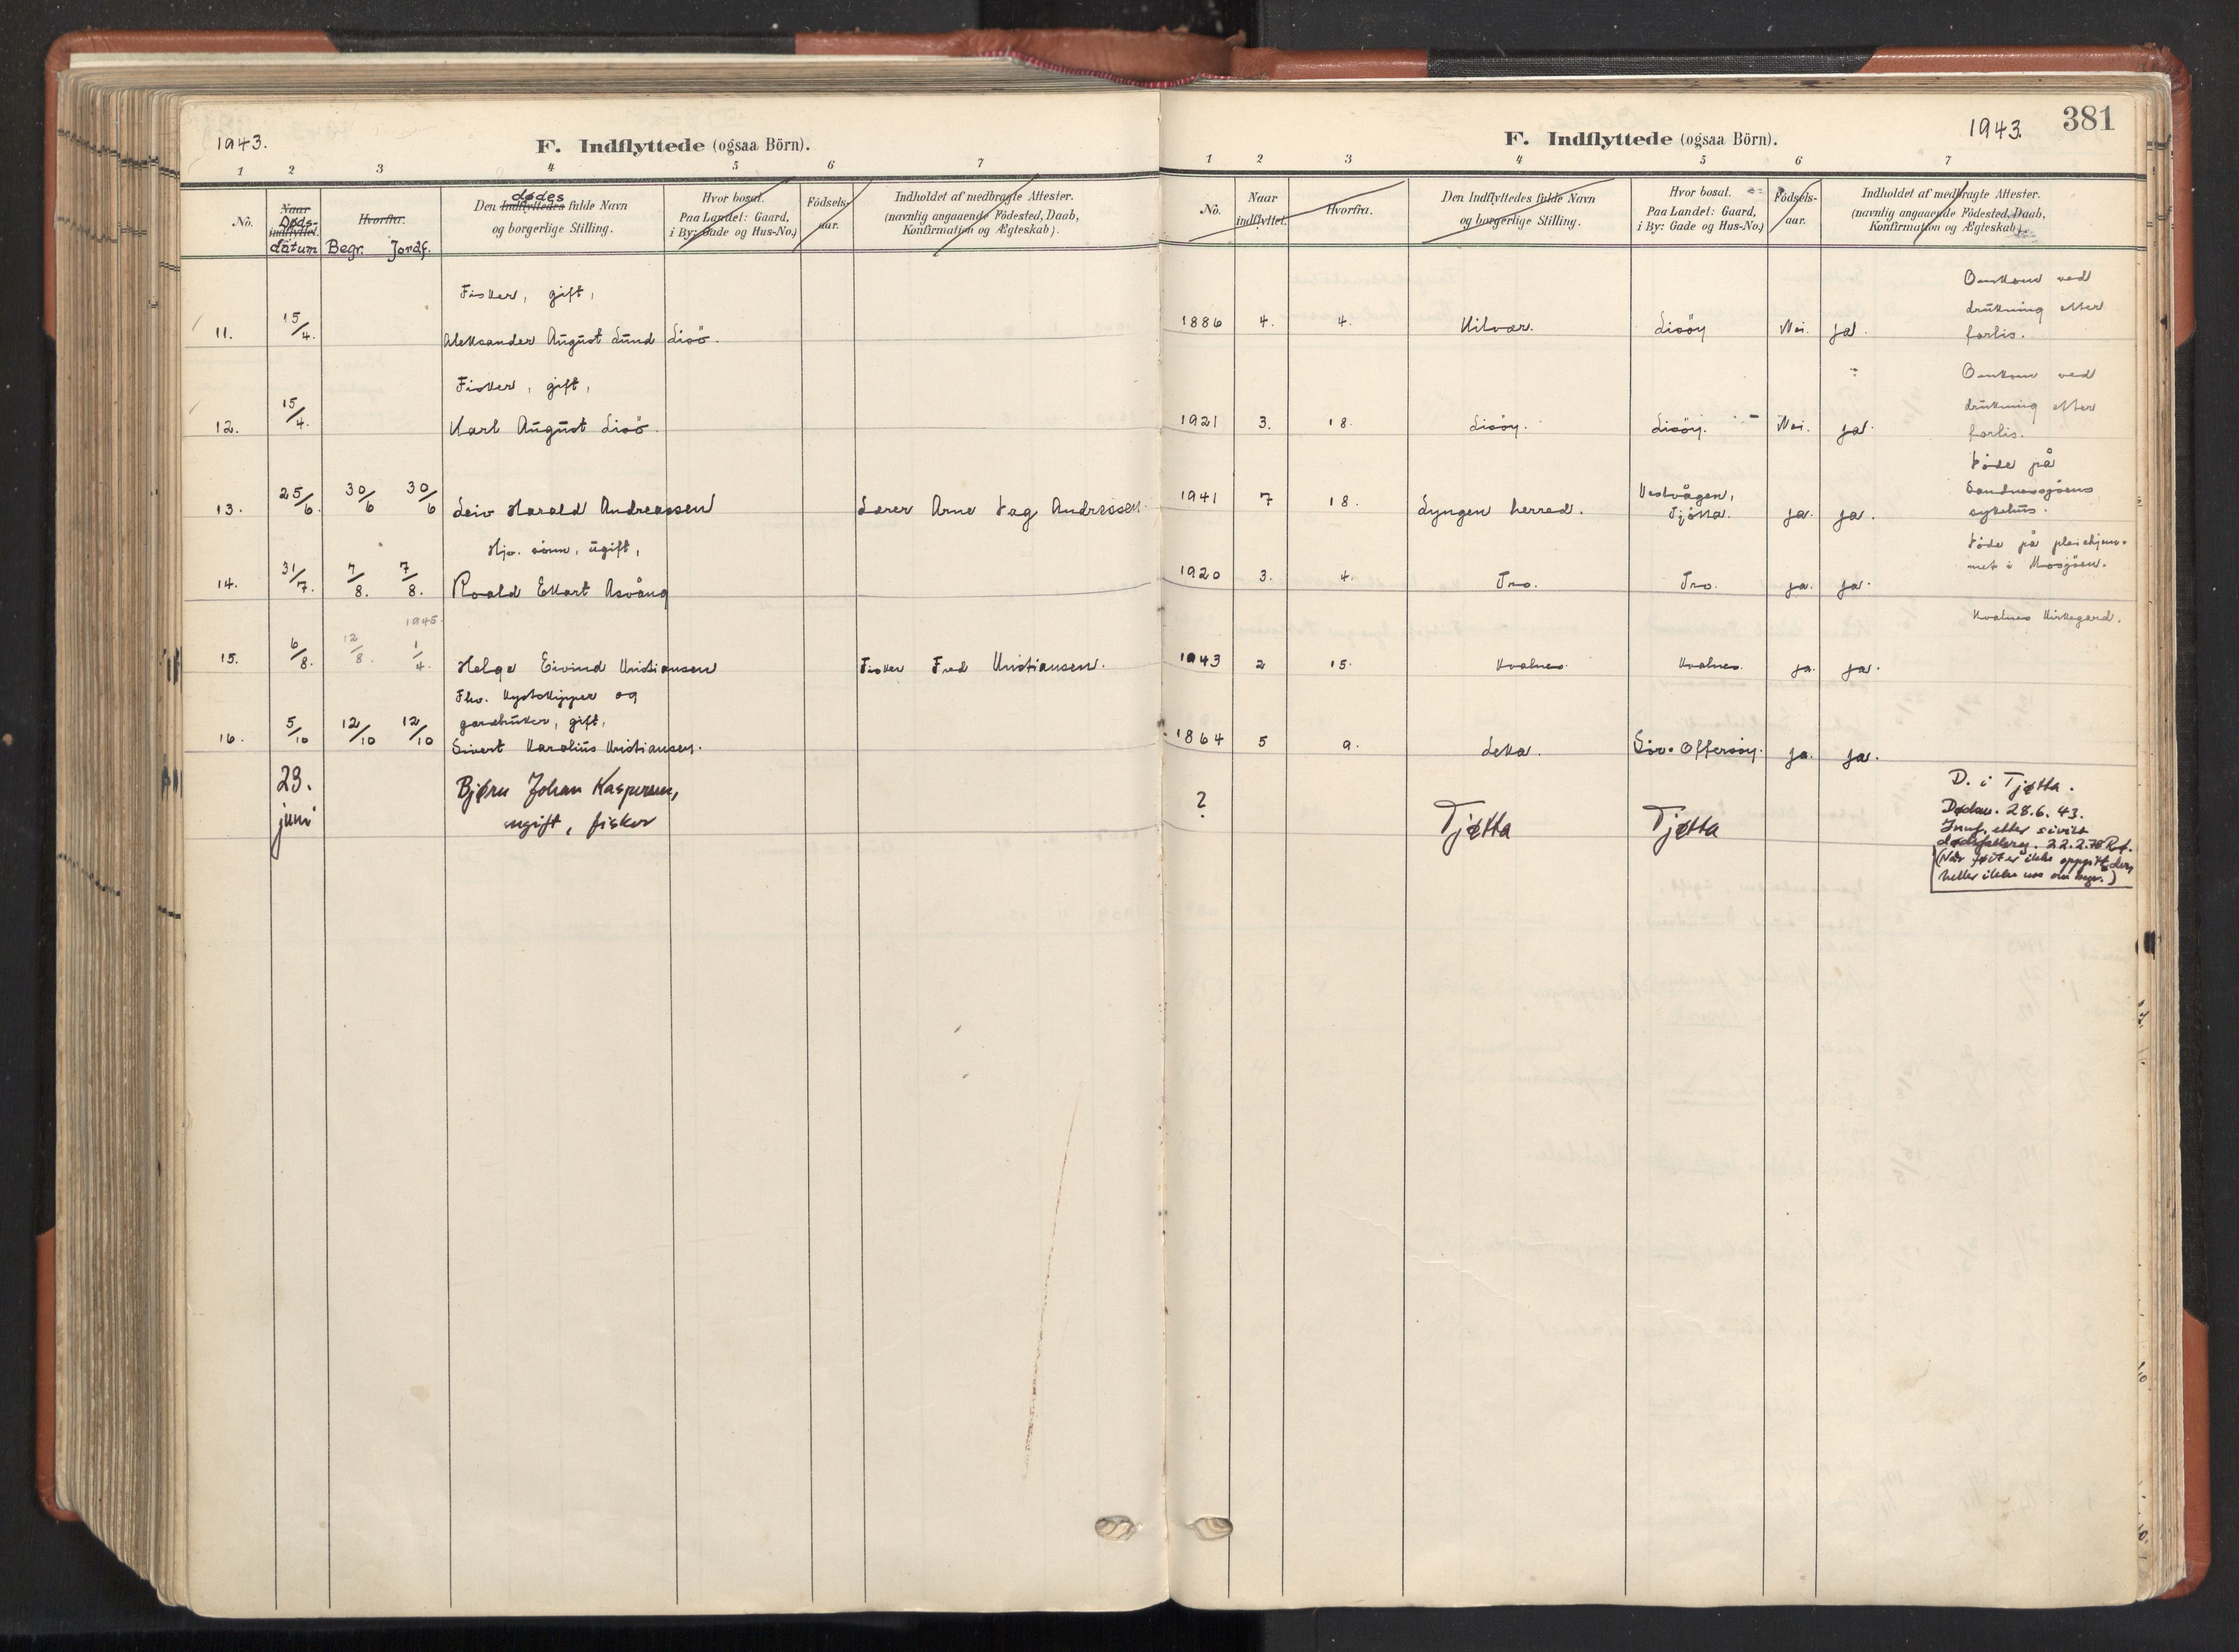 1943.
F. Indflyttede (ogsaa Börn).
1 2 3 4 5 6 7
No.
Naar indflyttet.
Døds-
datum
Hvorfra.
Begr. Jordf.
Den Indflyttedes fulde Navn
dødes
og borgerlige Stilling.
Hvor bosat.
Paa Landet: Gaard,
i By: Gade og Hus-No.)
Födsels-
aar.
Indholdet af medbragte Attester.
(navnlig angaaende Födested, Daab,
Konfirmation og Ægteskab).
Fisker, gift,
11. 15/4. Aleksander August Lund Lisö.
Fisker, gift,
12. 15/4. Karl August Lisö.
13. 25/6. 30/6 30/6 Leiv Harald Andreassen Lærer Arne Dag Andreassen.
Hjv. sönn, ugift,
14. 31/7. 7/8. 7/8. Roald Ekart Åsvång
1945.
15. 6/8. 12/8. 1/4. Helge Eivind Kristiansen Fisker Fred Kristiansen.
Fhv. kystskipper og
gardbruker, gift,
16. 5/10 12/10 12/10 Sivert Karolius Kristiansen.
23. Bjørn Johan Kaspersen,
juni ugift, fisker
1943. 381
F. Indflyttede (ogsaa Börn).
1 2 3 4 5 6 7
No.
Naar
indflyttet.
Hvorfra.
Den Indflyttedes fulde Navn
og borgerlige Stilling.
Hvor bosat.
Paa Landet: Gaard,
i By: Gade og Hus-No.)
Födsels-
aar.
Indholdet af medbragte Attester.
(navnlig angaaende Födested, Daab,
Konfirmation og Ægteskab).
Omkom ved
drukning etter
1886 4. 4. Kilvær. Lisöy Nei. ja. forlis.
Omkom ved
drukning etter
1921 3. 18. Lisöy. Lisöy. Nei. ja. forlis.
Döde på
Sandnessjöens
1941 7 18. Lyngen herred. Vestvågen, Tjötta. ja. ja. sykehus.
Döde på pleiehjem-
met i Mosjöen.
1920 3. 4. Tro. Tro. ja. ja.
Kvalnes kirkegard.
1943 2 15. Kvalnes Kvalnes. ja. ja.
1864 5 9. Leka. Sör-Offersöy. ja. ja.
? Tjøtta Tjøtta
D. i Tjøtta.
28.6.43.
etter sivilt
22.2.78
(Når født er ikke oppgitt,
heller ikke noe om